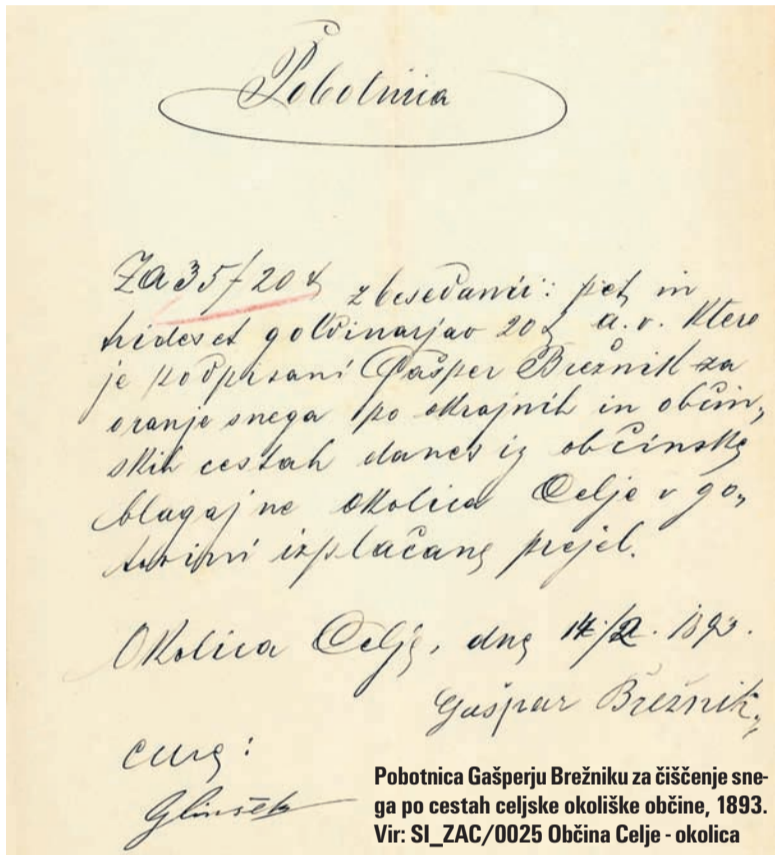 Pobotnica
Za 35 f 20 x z besedami: pet in
trideset goldinarjov 20 x a. v. ktere
je podpisani Gašper Brežnik za
oranje snega po okrajnih in občin„
skih cestah danes iz občinske
blagajne okolica Celje v go„
tovini izplačane prejel.
Okolica Celje, dne 14/2. 1893.
Gašpar Brežnik
Pobotnica Gašperju Brežniku za čiščenje sne-
ga po cestah celjske okoliške občine, 1893.
Vir: SI_ZAC/0025 Občina Celje - okolica